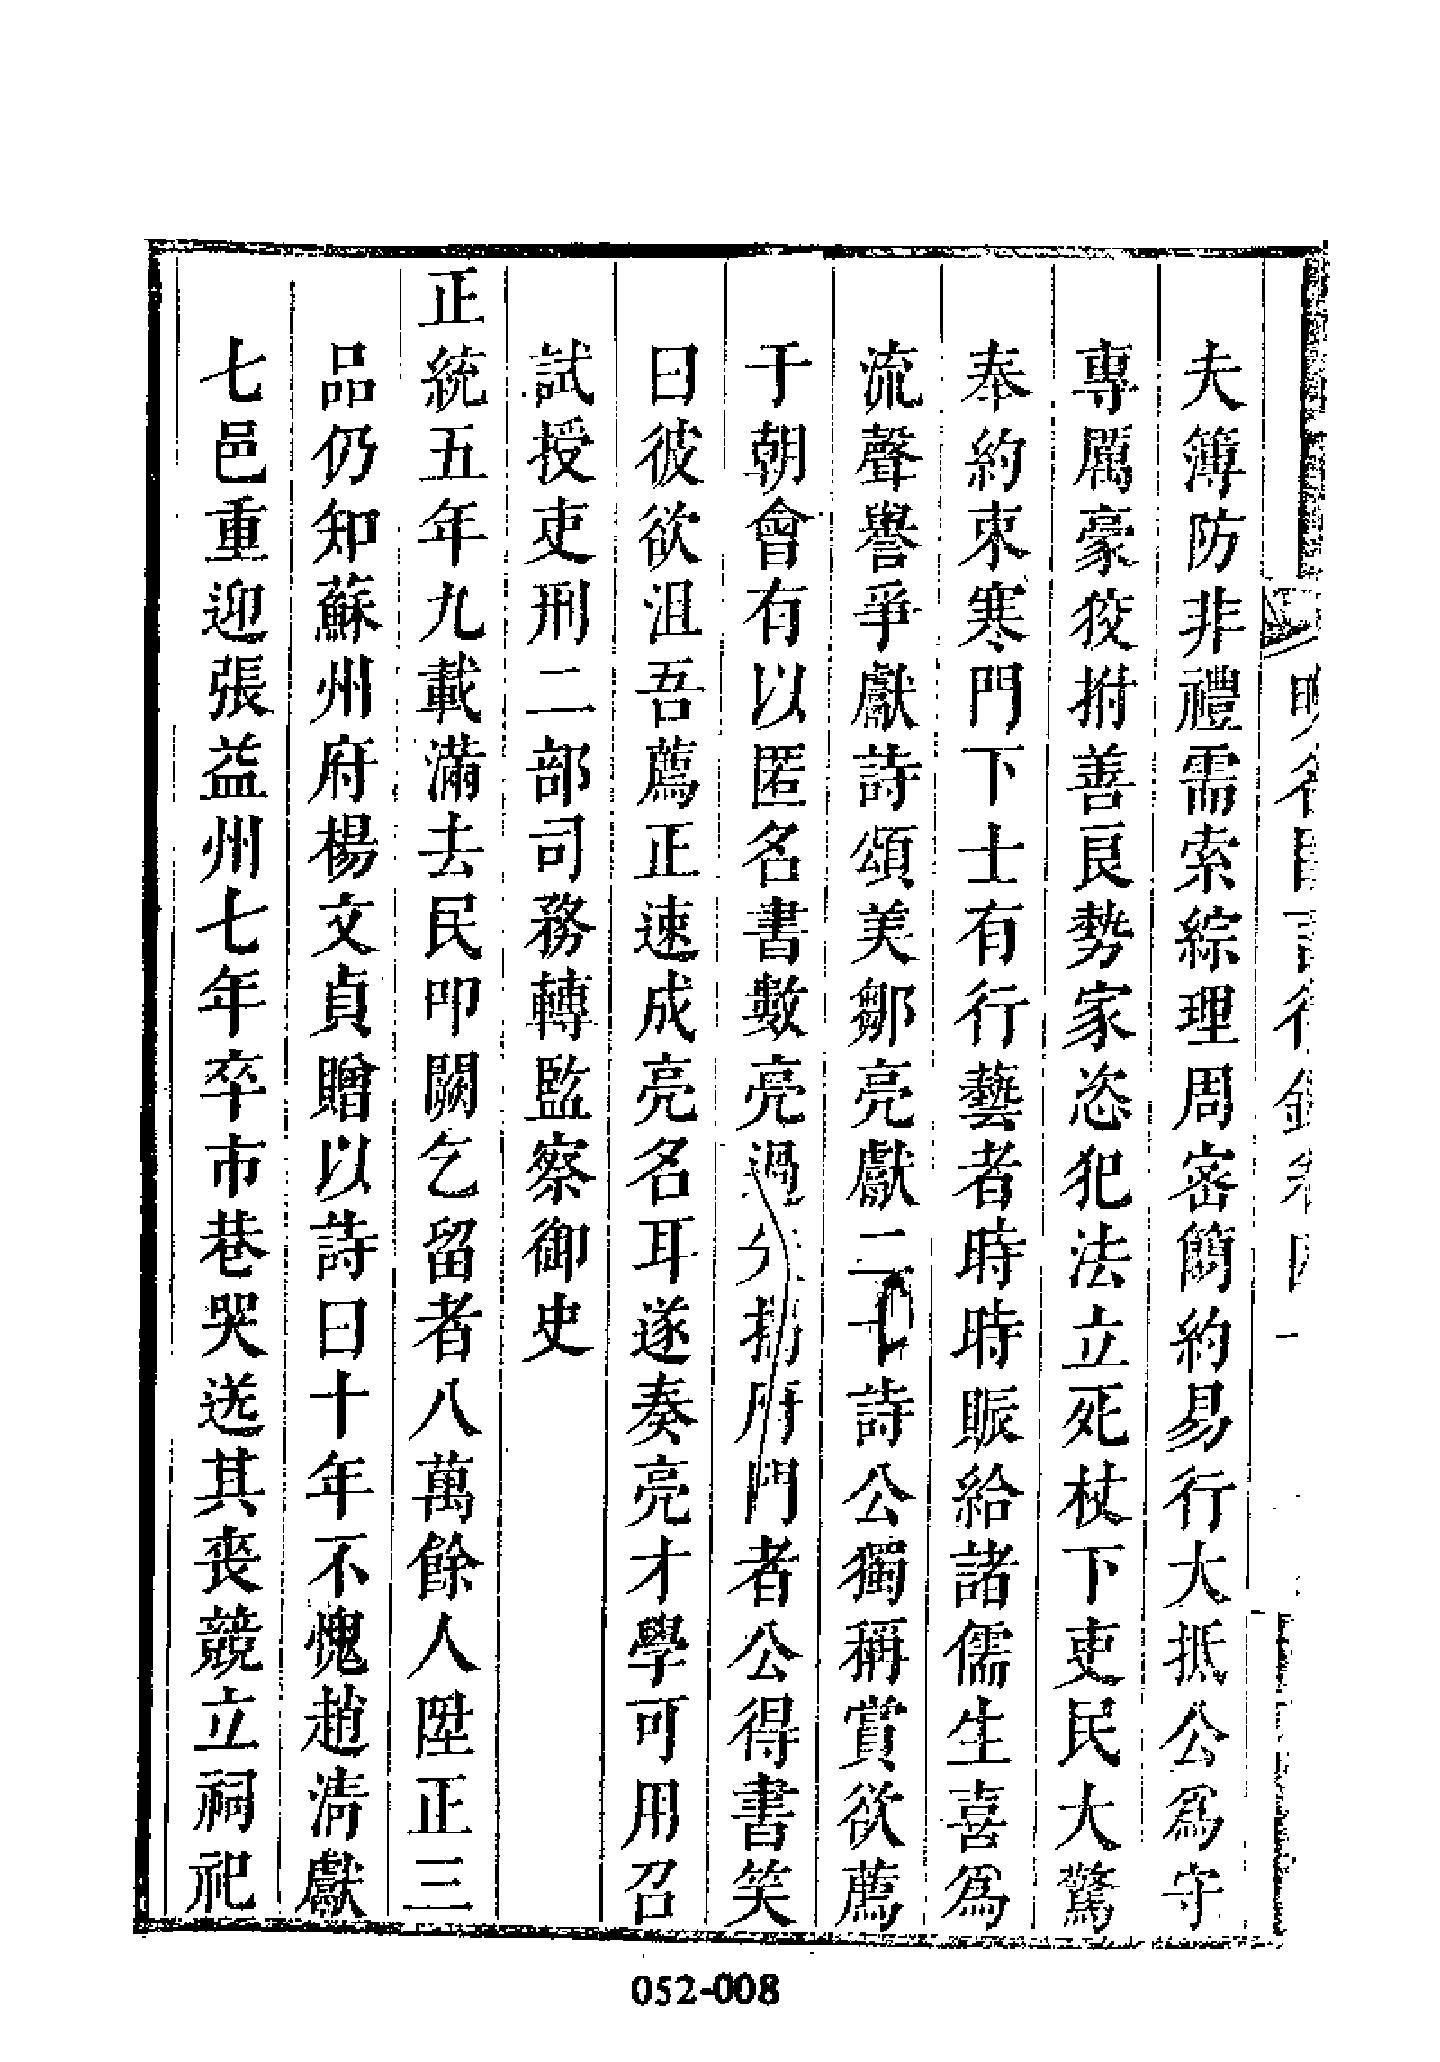 夫簿防非禮需索綜理周密簡約易行大抵公爲守
專厲豪狡拊善良勢家恣犯法立死杖下吏民大驚
奉約束寒門下士有行藝者時時賑給諸儒生喜爲
流聲譽爭獻詩頌美鄒亮獻二十詩公獨稱賞欲薦
于朝會有以匿名書數亮過失揭府門者公得書笑
曰彼欲沮吾薦正速成亮名耳遂奏亮才學可用召
試授吏刑二部司務轉監察御史
正統五年九載滿去民叩闕乞留者八萬餘人陞正三
品仍知蘇州府楊文貞贈以詩曰十年不愧趙清獻
七邑重迎張益州七年卒市巷哭送其喪競立祠祀
052-008